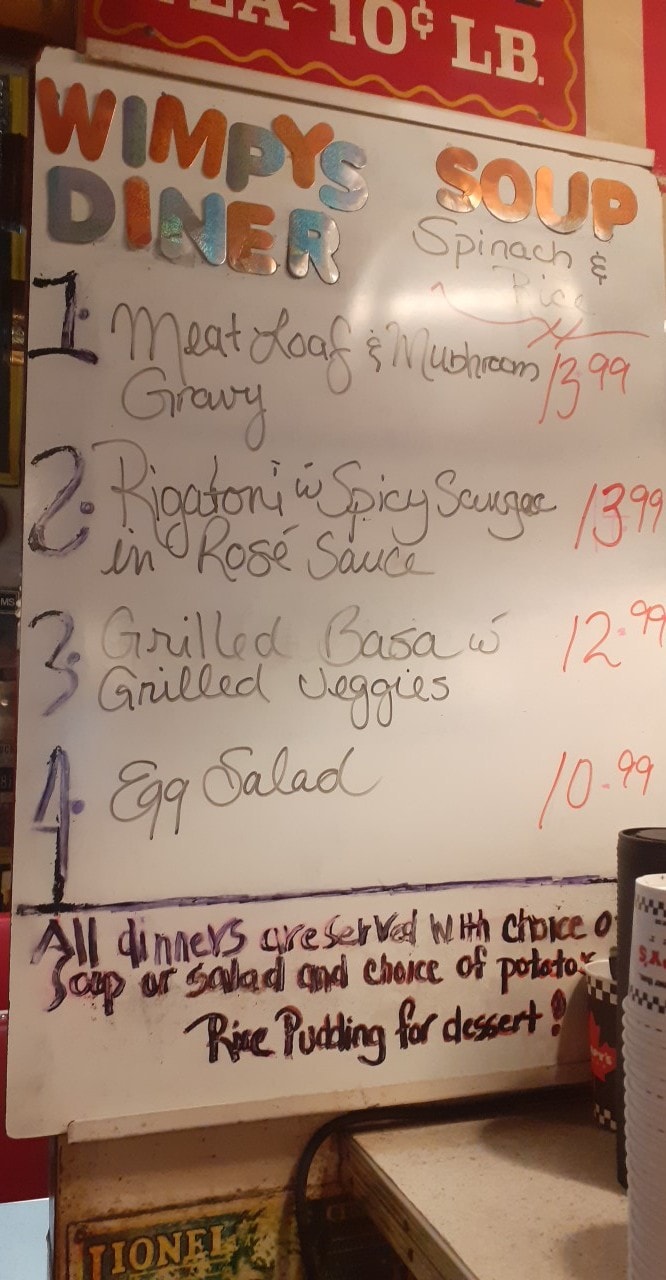 TEA~10¢ LB.
WIMPYS
DINER
SOUP
Spinach &
Rice
1. Meat Loaf & Mushroom 13.99
Gravy
2. Rigatoni w Spicy Sausage 13.99
in Rosé Sauce
3. Grilled Basa w 12.99
Grilled Veggies
4. Egg Salad 10.99
All dinners are served with choice o
Soup or salad and choice of potatos
Rice Pudding for dessert!
LIONEL